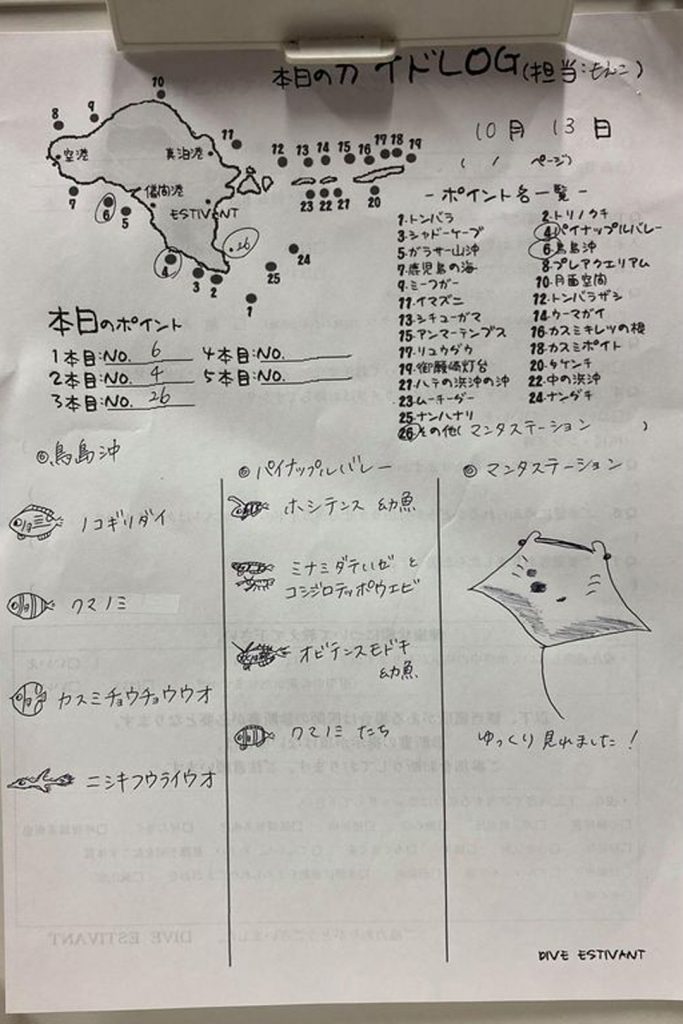 本日のガイドLOG(担当:もんこ)
10月 13日
( / ページ)
10
8 9
空港
真泊港
11
12 13 14 15 16 17 18 19
7
儀間港
6 5
ESTIVANT
23 22 21 20
26
4 3 2
25 24
1
-ポイント名一覧-
1.トンバラ 2.トリノクチ
3.シャドーケーブ 4.パイナップルバレー
5.ガラサー山沖 6.鳥島沖
7.鹿児島の海 8.プレアクエリアム
9.ミーフガー 10.月面空間
11.イマズニ 12.トンバラザシ
13.シチューガマ 14.ウーマガイ
15.アンマーテンプス 16.カスミキレツの根
17.リュウグウ 18.カスミポイント
19.御願崎灯台 20.タケンチ
21.ハテの浜沖の沖 22.中の浜沖
23.ムーチーダー 24.ナンダキ
25.ナンハナリ
26.その他( マンタステーション )
本日のポイント
1本目:NO. 6 4本目:NO.
2本目:NO. 4 5本目:NO.
3本目:NO. 26
◎鳥島沖
ノコギリダイ
クマノミ
カスミチョウチョウウオ
ニシキフウライウオ
◎パイナップルバレー
ホシテンス 幼魚
ミナミダテハゼ と
コシジロテッポウエビ
オビテンスモドキ
幼魚
クマノミ たち
◎マンタステーション
ゆっくり見れました!
DIVE ESTIVANT